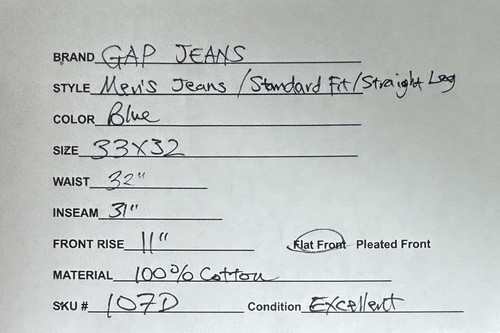 BRAND GAP JEANS
STYLE Men's Jeans / Standard Fit / Straight Leg
COLOR Blue
SIZE 33X32
WAIST 32"
INSEAM 31"
FRONT RISE 11" Flat Front Pleated Front
MATERIAL 100% Cotton
SKU # 107D Condition Excellent